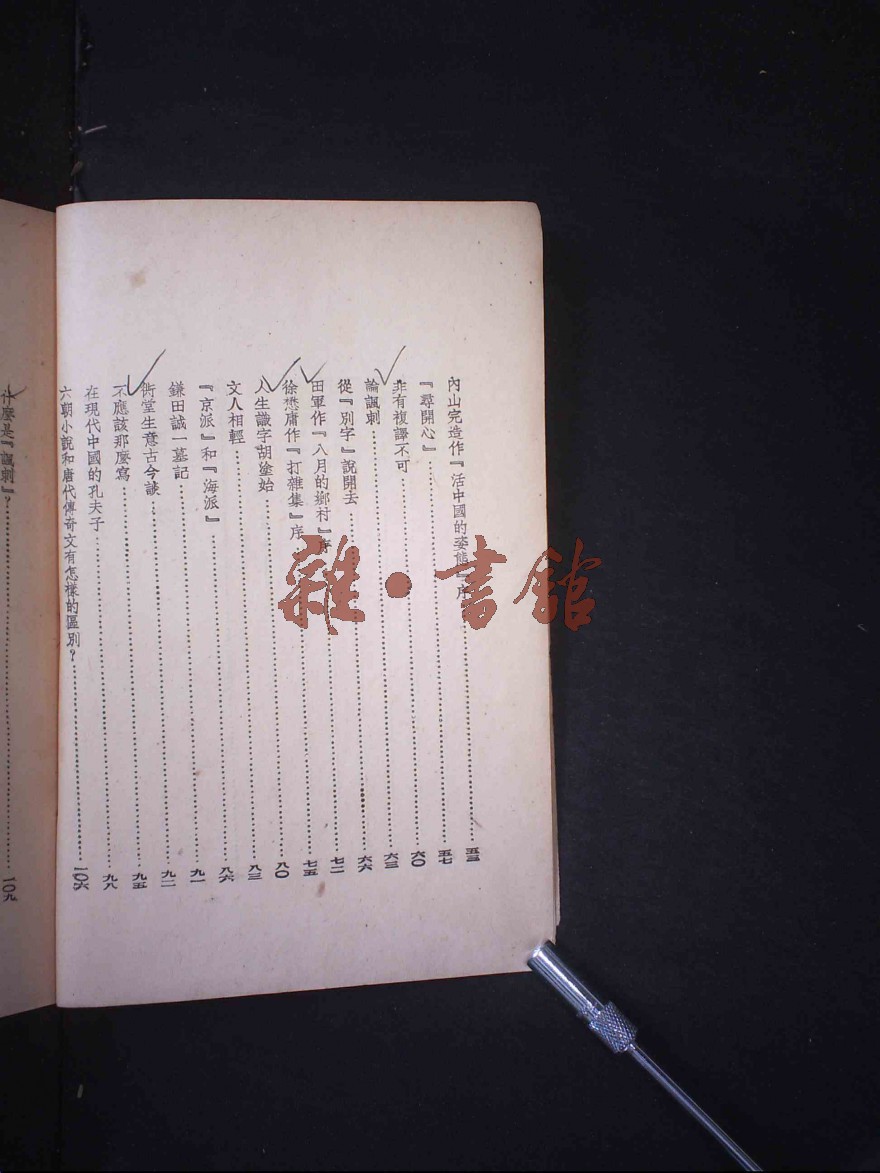 內山完造作『活中國的姿態』序……五三
『尋開心』……五七
非有複譯不可……六〇
論諷刺……六三
從『別字』說開去……六六
田軍作『八月的鄉村』序……七二
徐懋庸作『打雜集』序……七五
人生識字胡塗始……八〇
文人相輕……八三
『京派』和『海派』……八六
鎌田誠一墓記……九一
衖堂生意古今談……九二
不應該那麼寫……九五
在現代中國的孔夫子……九八
六朝小說和唐代傳奇文有怎樣的區別?……一〇六
什麼是『諷刺』?……一〇九
雜·書館